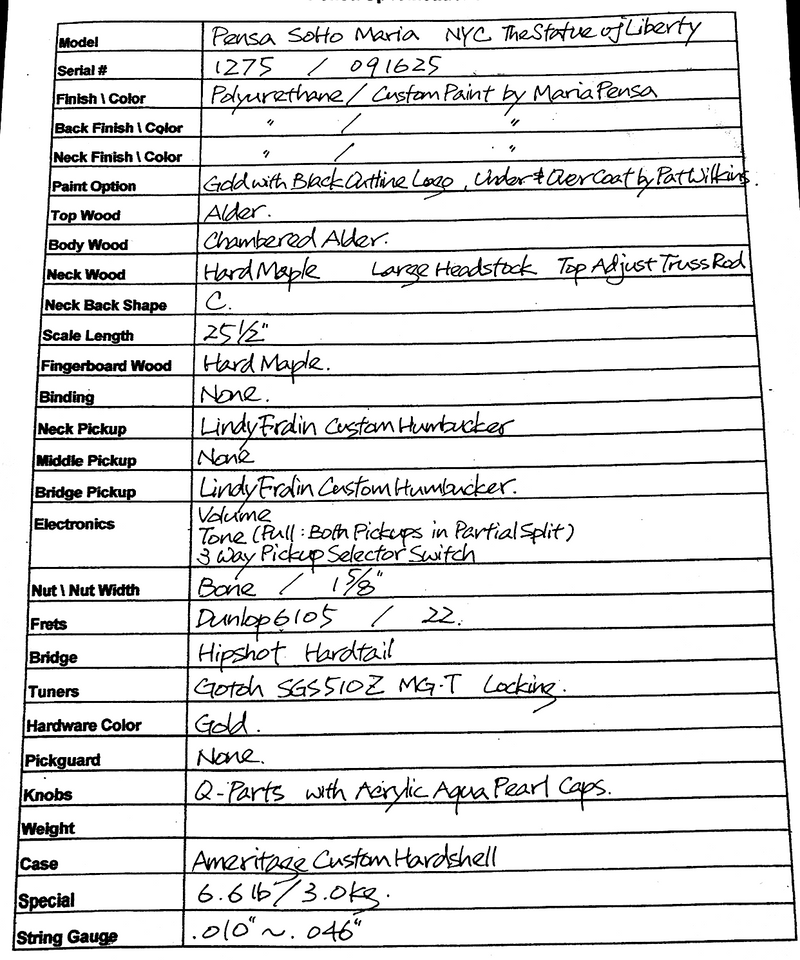 Model Pensa Sotto Maria NYC The Statue of Liberty
Serial # 1275 / 091625
Finish \ Color Polyurethane / Custom Paint by Maria Pensa
Back Finish \ Color " / "
Neck Finish \ Color " / "
Paint Option Gold with Black Outline Logo, Under & Over Coat by Pat Wilkins.
Top Wood Alder.
Body Wood Chambered Alder.
Neck Wood Hard Maple Large Headstock Top Adjust Truss Rod
Neck Back Shape C.
Scale Length 25 1/2"
Fingerboard Wood Hard Maple.
Binding None.
Neck Pickup Lindy Fralin Custom Humbucker
Middle Pickup None
Bridge Pickup Lindy Fralin Custom Humbucker.
Electronics Volume
Tone (Pull : Both Pickups in Partial Split)
3 Way Pickup Selector Switch
Nut \ Nut Width Bone / 1 5/8"
Frets Dunlop 6105 / 22.
Bridge Hipshot Hardtail
Tuners Gotoh SGS510Z MG-T Locking.
Hardware Color Gold.
Pickguard None.
Knobs Q-Parts with Acrylic Aqua Pearl Caps.
Weight
Case Ameritage Custom Hardshell
Special 6.6 lb / 3.0kg.
String Gauge .010" ~ .046"